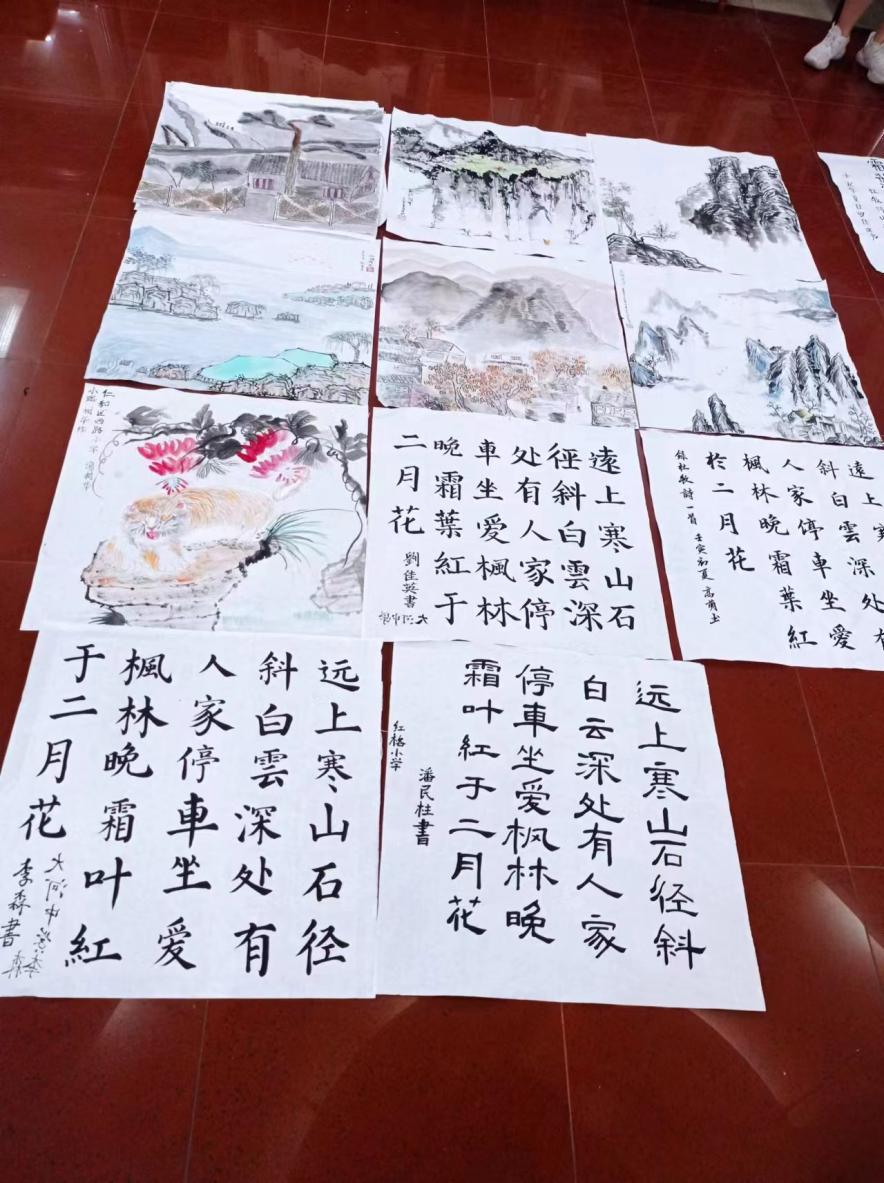 仁和区西路小学
遠上寒山石
徑斜白雲深
处有人家停
車坐愛楓林
晚霜葉紅于
二月花
劉佳英書
遠上寒
斜白雲深处有
人家停車坐愛
楓林晚霜葉紅
於二月花
錄杜牧詩一首 壬寅初夏
远上寒山石径
斜白雲深处有
人家停車坐爱
楓林晚霜叶紅
于二月花
大河中学
李森書
远上寒山石径斜
白云深处有人家
停車坐爱枫林晚
霜叶紅于二月花
潘民柱書
红格小学